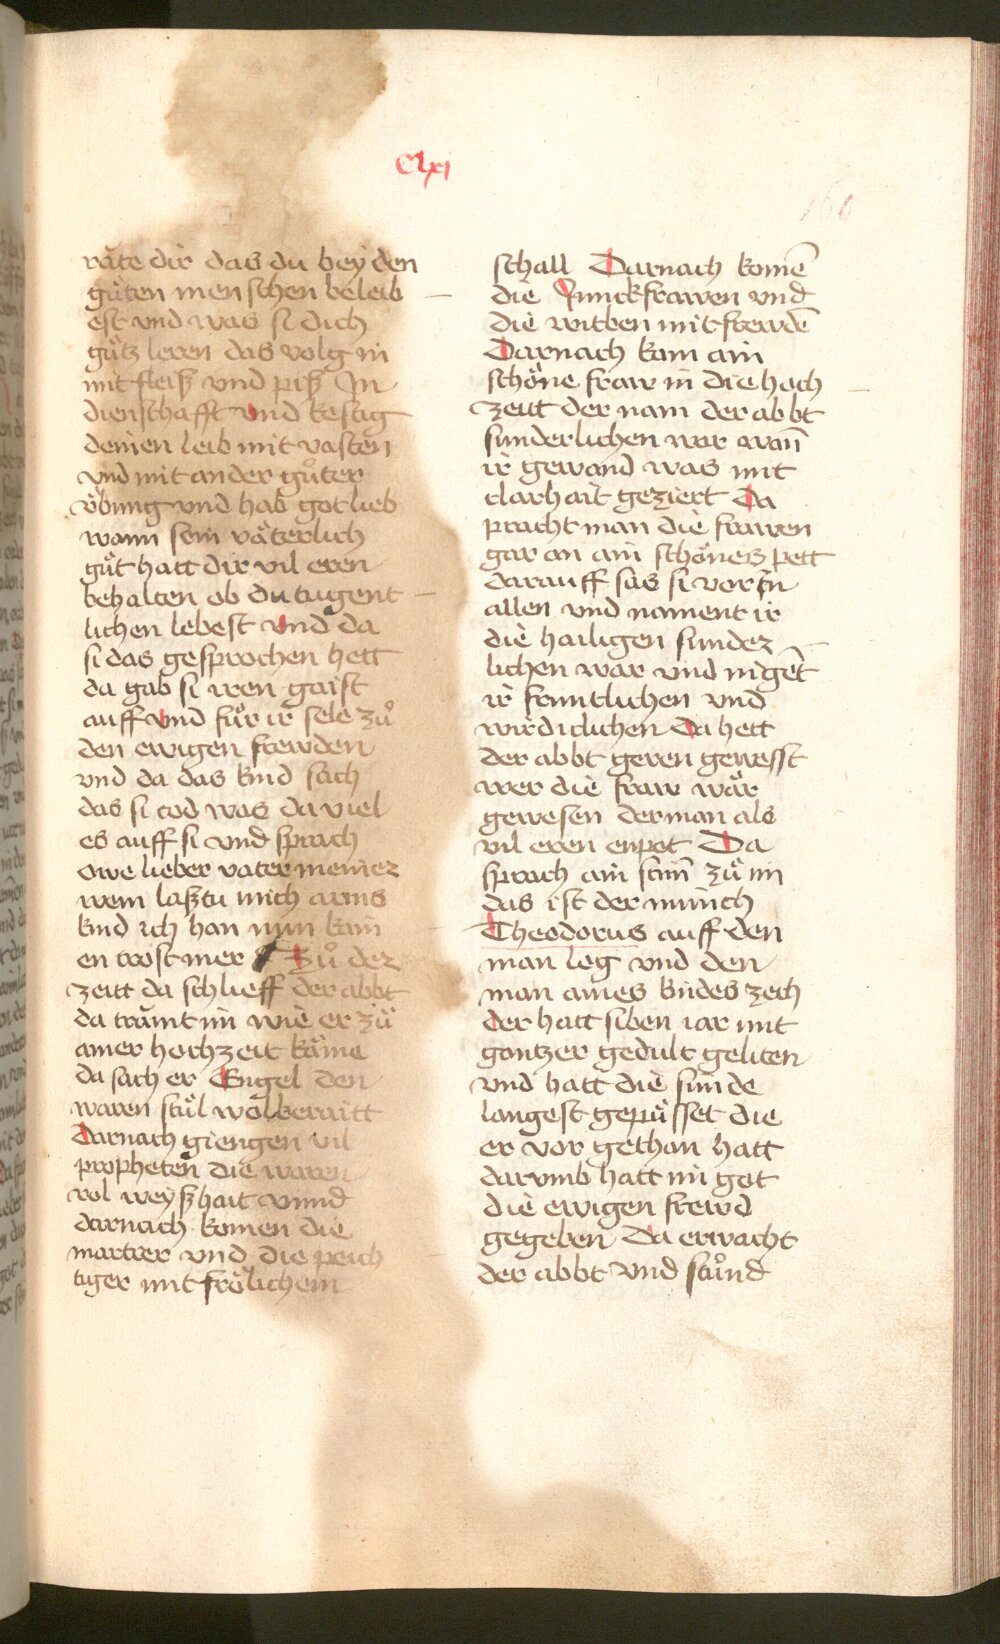 Clxi
160
räte dir das du bey den
güten menschen beleib
est vnd was si dich
gütz leren das volg in
mit fleiß vnd piß In
dienschafft vnd kestig
deinen leib mit vasten
vnd mit ander gůter
v̈bung vnd hab got lieb
wann sein väterlich
güt hatt dir vil eren
behalten ob du tugent
lichen lebest vnd da
si das gesprochen hett
da gab si iren gaist
auff vnd für ir sele zů
den ewigen frewden
vnd da das kind sach
das si tod was da viel
es auff si vnd sprach
owe lieber vater meinez
wem laßtu mich arms
kind ich han nun kain
en trost mer Zů dez
zeitt da schlieff der abbt
da traumt im wie er zü
ainer hochzeit käme
da sach er Engel den
waren stül wol beraitt
Darnach giengen vil
propheten die waren
vol weyßhait vnnd
darnach komen die
martrer vnd die peich
tiger mit frölichem
schall Darnach komē
die Junckfrawen vnd
die witben mit frewdē
Darnach kam ain
schöne fraw in die hoch
zeitt der nam der abbt
sunderlichen war wan̄
ir gewand was mit
clarhait geziert Da
pracht man die frawen
gar an ain schönes pett
darauff sas si vor in
allen vnd nament ir
die hailigen sundez
lichen war vnd nigēt
ir fruntlichen vnd
wirdiclichen Da hett
der abbt geren gewesst
wer die fraw wär
gewesen der man als
vil eren enpot Da
sprach ain stim̄ zü im
das ist der münch
Theodorus auff den
man log vnd den
man aines kindes zech
der hatt siben iar mit
gantzer gedult geliten
vnd hatt die sünde
langest gepüsset die
er vor gethan hatt
darvmb hatt im got
die ewigen frewd
gegeben Da erwacht
der abbt vnd stůnd